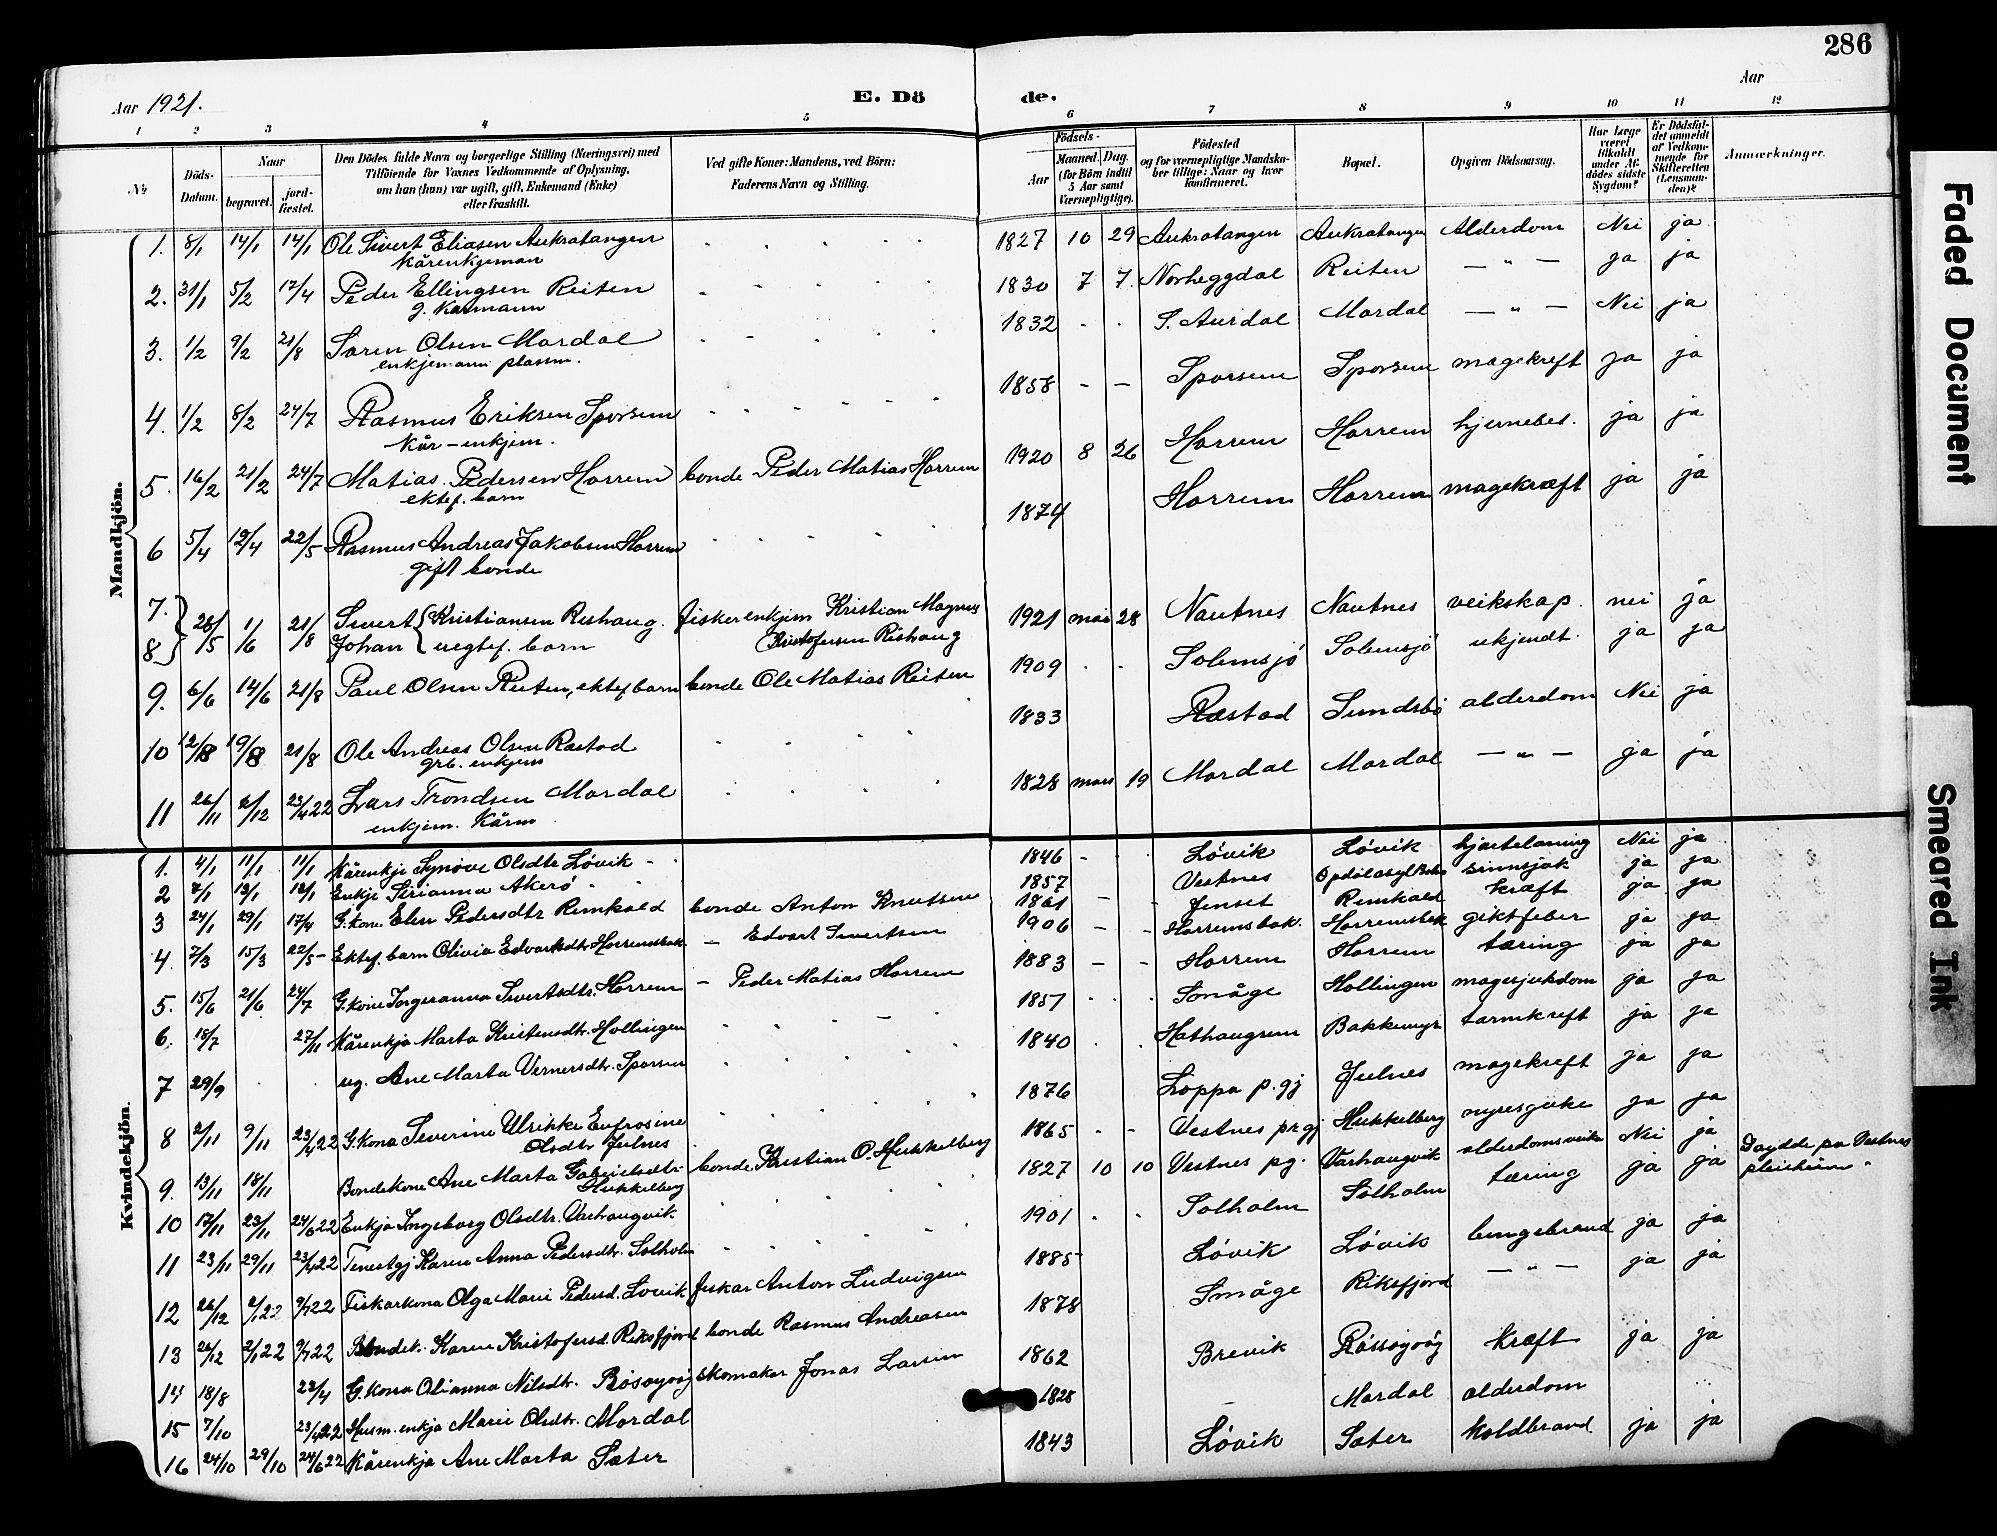 286
Aar 1921.
E. Dö
de.
Aar
1 2 3 4 5 6 7 8 9 10 11 12
No
Döds-Datum.
Naar
begravet.
jord-fæstet.
Den Dödes fulde Navn og borgerlige Stilling (Næringsvei) med
Tilföiende for Voxnes Vedkommende af Oplysning,
om han (hun) var ugift, gift, Enkemand (Enke)
eller fraskilt.
Ved gifte Koner: Mandens, ved Börn:
Faderens Navn og Stilling.
Födsels-
Aar
Maaned. Dag.
(for Börn indtil
5 Aar samt
Værnepligtige).
Födested
og for værnepligtige Mandska-
ber tillige: Naar og hvor
konfirmeret.
Bopæl.
Opgiven Dödsaarsag.
Har Læge
været
tilkaldt
under Af-
dödes sidste
Sygdom?
Er Dödsfal-
det anmeldt
af Vedkom-
mende for
Skifteretten
(Lensman-
den)?
Anmærkninger.
Mandkjön.
1. 8/1 14/1 14/1 Ole Sivert Eliasen Aukratangen 1827 10 29 Aukratangen Aukratangen Alderdom Nei ja
kårenkjeman
2. 31/1 5/2 17/4 Peder Ellingsen Reiten 1830 7 7. Norheggdal Reiten — " — ja ja
g. kårmann
3. 1/2 9/2 21/8 Søren Olsen Mordal 1832 S. Aurdal Mordal — " — Nei ja
enkjemann plassm.
4. 1/2 8/2 24/7 Rasmus Eriksen Sporsem 1858 - - Sporsem Sporsem magekreft ja ja
kår-enkjem.
5. 16/2 21/2 24/7 Matias Pedersen Horrem bonde Peder Matias Horrem 1920 8 26 Horrem Horrem hjernebet. ja ja
ektef. barn
6 5/4 12/4 22/5 Rasmus Andreas Jakobsen Horrem 1874 Horrem Horrem magekræft ja ja
gift bonde
7. 28/5 1/6 21/8 Sivert Kristiansen Rishaug. fisker enkjem Kristian Magnus 1921 mai 28 Nautnes Nautnes veikskap. nei ja
8. Johan uegtef. barn Kristofersen Rishaug
9. 6/6 14/6 21/8 Paul Olsen Reiten, ektef barn bonde Ole Matias Reiten 1909 Solemsjö Solemsjö ukjendt. ja ja
10 12/8 19/8 21/8 Ole Andreas Olsen Røstad 1833 Røstad Sundsbö alderdom Nei ja
grb. enkjem
11 26/11 2/12 23/4 22 Lars Trondsen Mordal 1828 mars 19 Mordal Mordal — " — ja ja
enkjem. kårm
Kvindekjön.
1. 4/1 11/1 11/1 Kårenkje Synøve Olsdtr Løvik 1846 Løvik Løvik hjartelaming Nei ja
2 7/1 13/1 13/1 Enkje Serianna Akerø 1857 Vestnes sinnsjuk ja ja
3 24/1 29/1 17/4 G.kone Elen Pedersdtr Reinkald bonde Anton Knutsen 1861 Jenset Reinkald kræft ja ja
4. 7/3 15/3 22/5 Ektef. barn Olivia Edvartsdtr Horremsbak — Edvart Sivertsen 1906 Horremsbak. Horremsbak giktfeber ja ja
5. 15/6 21/6 24/7 G.kone Ingeranna Sivertsdtr. Horrem — Peder Matias Horrem 1883 Horrem Horrem tæring ja ja
6. 18/7 27/11 Kårenkja Marta Kristensdtr. Hollingen 1851 Småge Hollingen magesjukdom ja ja
7 29/9 ug. Ane Marta Vernersdtr. Sporsem 1840 Hathaugrem Bakkemyr tarmkreft ja ja
8 2/11 9/11 23/4 22 G.kona Severine Ulrikke Eufrosine 1876 Loppa p.gj Julnes magekreft ja ja
Olsdtr Julnes
9. 13/11 18/11 Bondekone Ane Marta Gabrielsdtr. bonde Kristian O. Hukkelberg 1865 Vestnes prgj Hukkelberg nyresjuke ja ja
Hukkelberg
10 17/11 23/11 24/6 22 Enkja Ingeborg Olsdtr. Varhaugvik 1827 10 10 Vestnes pg. Varhaugvik alderdomsveik Nei ja Døydde på Vestnes
pleieheim.
11 23/11 29/11 23/4 22 Tenestgj Karen Anna Pedersdtr. Solholm 1901 Solholm Solholm tæring ja ja
12 26/12 2/1 22 9/7 22 Fiskarkona Olga Marie Pedersd. Løvik fiskar Anton Ludvigsen 1885 Løvik Løvik lungebrand ja ja
13 26/12 2/1 22 9/7 22 Bondek. Karen Kristofersd. Riksfjord bonde Rasmus Andreasen 1878 Småge Riksfjord — " — ja ja
14 18/8 23/4 G.kona Olianna Nilsdtr. Røssøyvåg skomakar Jonas Larsen 1862 Brevik Røssøyvåg kræft ja ja
15 7/10 23/4 22 Husm. enkja Marie Olsdtr. Mordal 1828 — Mordal alderdom
16 24/10 29/10 24/6 22 Kårenkja Ane Marta Sæter 1843 Løvik Sæter koldbrand ja ja
Faded Document
Smeared Ink